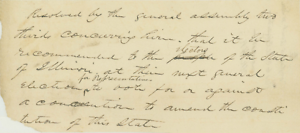 Resolved by the general assembly two
third concurring therein. that it be
electors
recommended to the of the State
of Illinois, at their next general
for Representatives
election to vote for or against
a convention to amend the consti
tution of this state